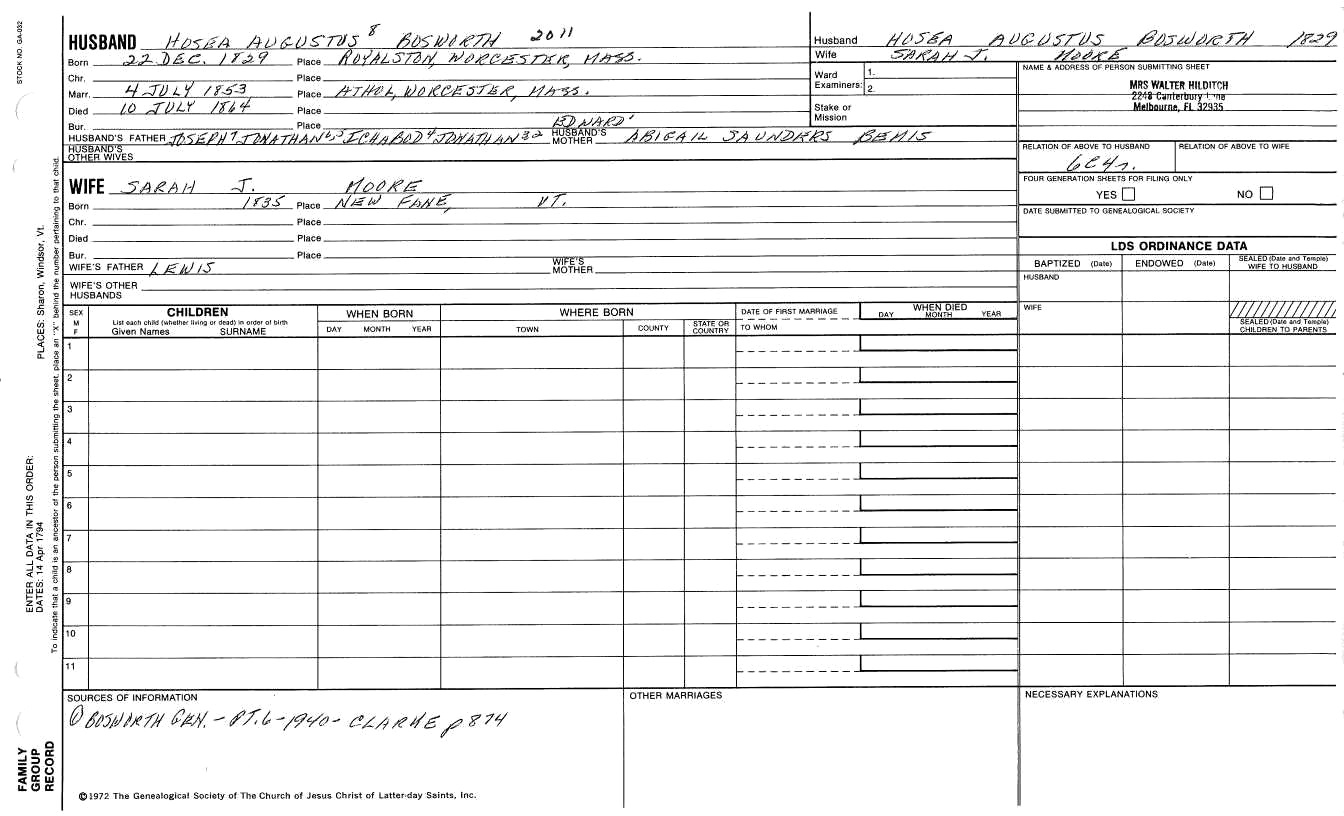 STOCK NO. GA-032
HUSBAND HOSEA AUGUSTUS 8 BOSWORTH 2011
Born 22 DEC. 1829 Place ROYALSTON, WORCESTER, MASS.
Chr. Place
Marr. 4 JULY 1853 Place ATHOL, WORCESTER, MASS.
Died 10 JULY 1864 Place
Bur. Place
HUSBAND'S FATHER JOSEPH 7 JONATHAN 6,5 ICHABOD 4 JONATHAN 3 2 EDWARD 1 HUSBAND'S MOTHER ABIGAIL SAUNDERS BEMIS
HUSBAND'S OTHER WIVES
WIFE SARAH J. MOORE
Born 1835 Place NEW FANE, VT.
Chr. Place
Died Place
Bur. Place
WIFE'S FATHER LEWIS WIFE'S MOTHER
WIFE'S OTHER HUSBANDS
Husband HOSEA AUGUSTUS BOSWORTH 1829
Wife SARAH J. MOORE
Ward Examiners: 1. 2.
Stake or Mission
NAME & ADDRESS OF PERSON SUBMITTING SHEET
MRS WALTER HILDITCH
2248 Canterbury
Melbourne, FL 32935
RELATION OF ABOVE TO HUSBAND RELATION OF ABOVE TO WIFE
6C4r.
FOUR GENERATION SHEETS FOR FILING ONLY
YES NO
DATE SUBMITTED TO GENEALOGICAL SOCIETY
LDS ORDINANCE DATA
BAPTIZED (Date) ENDOWED (Date) SEALED (Date and Temple) WIFE TO HUSBAND
HUSBAND
WIFE
SEALED (Date and Temple) CHILDREN TO PARENTS
SEX M F
CHILDREN
List each child (whether living or dead) in order of birth
Given Names SURNAME
WHEN BORN
DAY MONTH YEAR
WHERE BORN
TOWN COUNTY STATE OR COUNTRY
DATE OF FIRST MARRIAGE
TO WHOM
WHEN DIED
DAY MONTH YEAR
1
2
3
4
5
6
7
8
9
10
11
SOURCES OF INFORMATION
① BOSWORTH GEN. - PT. 6 - 1940 - CLARKE p 874
OTHER MARRIAGES
NECESSARY EXPLANATIONS
©1972 The Genealogical Society of The Church of Jesus Christ of Latter-day Saints, Inc.
PLACES: Sharon, Windsor, Vt.
ENTER ALL DATA IN THIS ORDER:
DATES: 14 Apr 1794
To indicate that a child is an ancestor of the person submitting the sheet, place an "X" behind the number pertaining to that child.
FAMILY
GROUP
RECORD